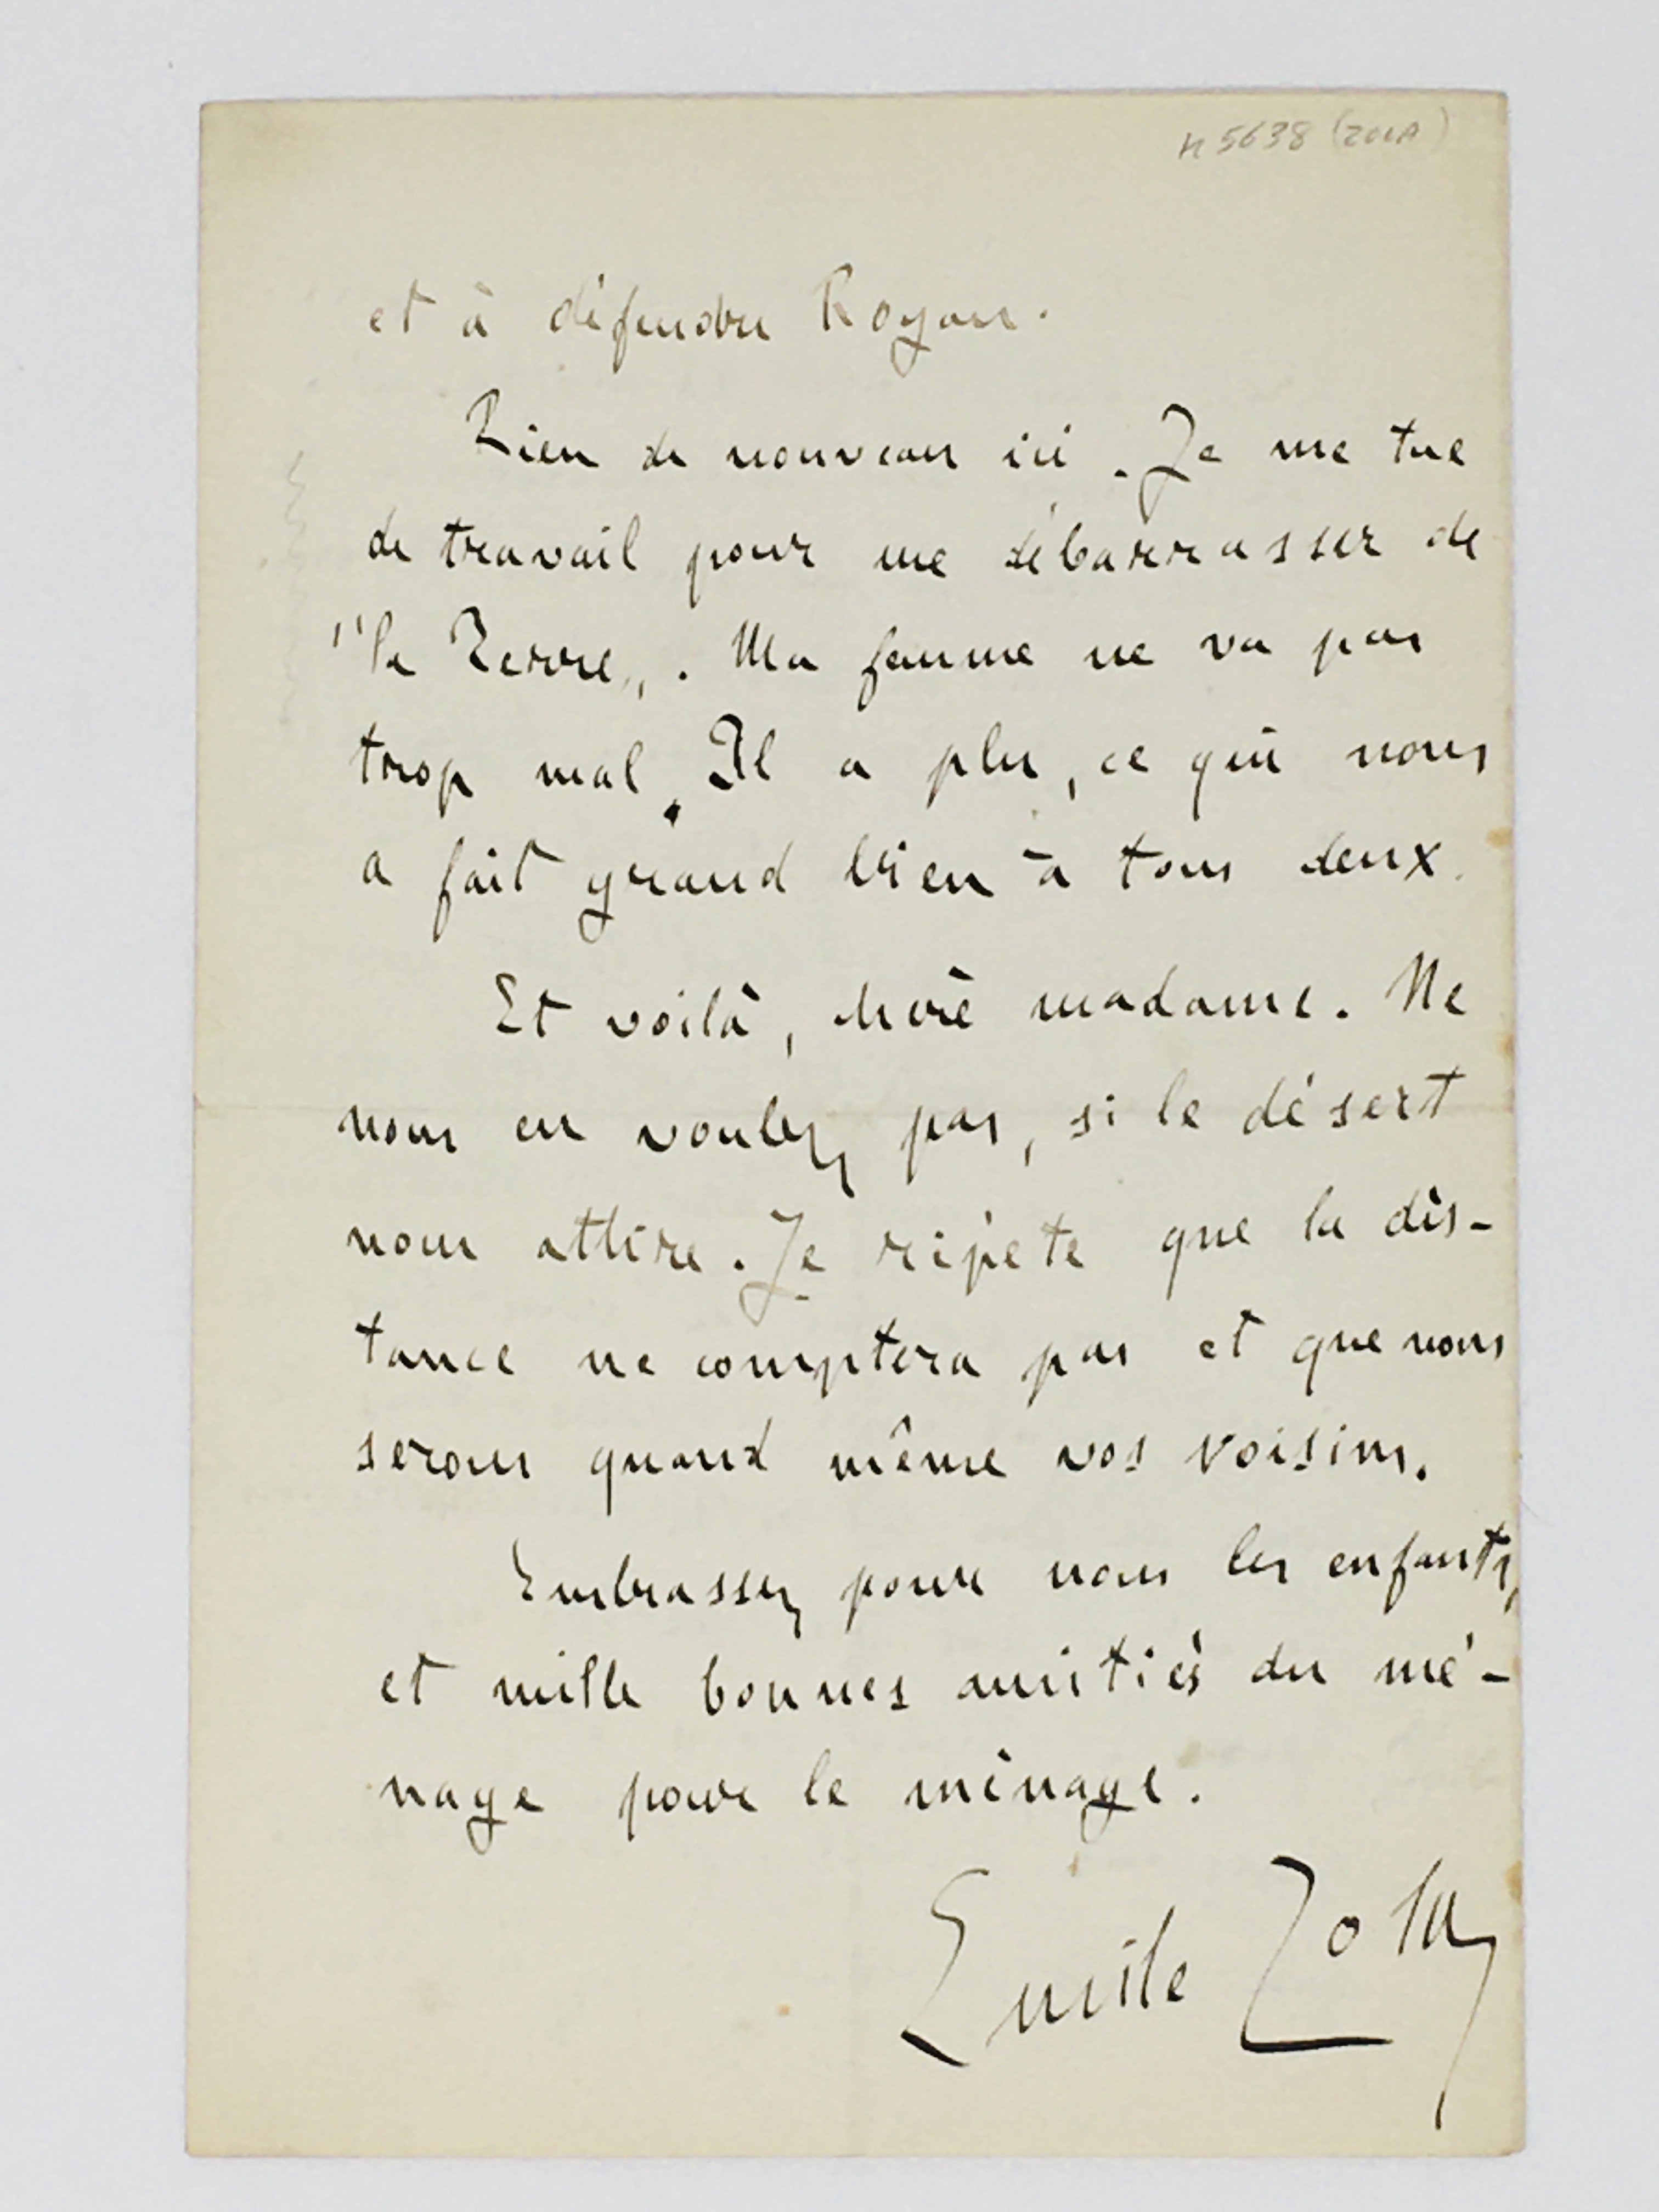 N 5638 (ZOLA)
et à défendre Royan.
Rien de nouveau ici. Je me tue
de travail pour me débarrasser de
"la Terre„. Ma femme ne va pas
trop mal. Il a plu, ce qui nous
a fait grand bien à tous deux.
Et voilà, chère madame. Ne
nous en voulez pas, si le désert
nous attire. Je répète que la dis-
tance ne comptera pas et que nous
serons quand même vos voisins.
Embrassez pour nous les enfants,
et mille bonnes amitiés du mé-
nage pour le ménage.
Emile Zola